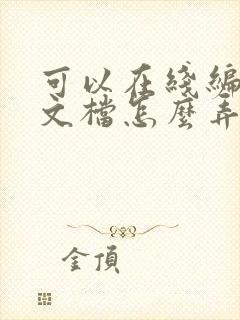 可以在綫編
文檔怎麼弄
金頂